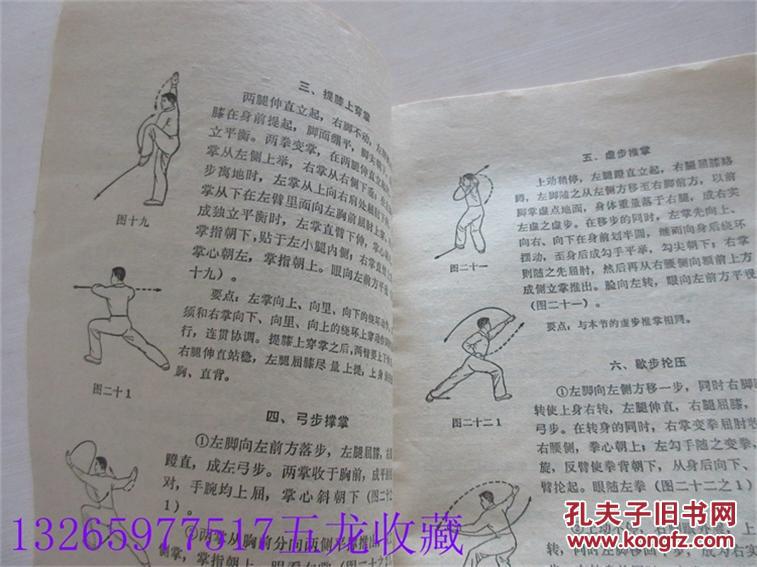 三、提膝上穿掌
两腿伸直立起，右脚不动，左腿
膝在身前提起，脚面绷平，脚尖
立平衡。两拳变掌，在两腿伸直
掌从左侧上举，右掌从右侧下垂
步离地时，左掌从上向右肩处
掌从下在左臂里面向左胸前屈肘上
成独立平衡时，左掌直臂下伸，掌心
掌指朝下，贴于左小腿内侧，右掌直臂
掌心朝左，掌指朝上。眼向左前方平视
十九）。
要点：左掌向上、向里、向下的绕环动
须和右掌向下、向里、向上的绕环上穿动作
行，连贯协调。提膝上穿掌之后，两臂要上下
右腿伸直站稳，左腿屈膝尽量上提；上身
胸、直背。
图十九
图二十1
四、弓步撑掌
①左脚向左前方落步，左腿屈膝，右
蹬直，成左弓步。两掌收于胸前，成平
对，手腕均上屈，掌心斜朝下（图二十之
1）。
②两掌从胸前分向两侧平
侧掌，掌指朝上。眼看左掌
五、虚步推掌
上动稍停，左腿蹬直立起，右腿屈膝略
蹲，左脚随之从左侧方移至右脚前方，以前
脚掌虚点地面，身体重量落于右腿，成右实
左虚之虚步。在移步的同时，左掌先向上、
向右、向下在身前划半圆，继而向身后绕环
摆动，至身后成勾手平举，勾尖朝下；右掌
则随之先屈肘，然后再从右腰侧向额前上方
成侧立掌推出。脸向左转，眼向左前方平视
（图二十一）。
要点：与本节的虚步推掌相同。
图二十一
六、歇步抡压
①左脚向左侧方移一步，同时右脚
转使上身右转，左腿伸直，右腿屈膝，
弓步。在转身的同时，右掌变拳屈肘
右腰侧，拳心朝上；左勾手随之变拳，
旋，反臂使拳背朝下，从身后向下、
臂抡起。眼随左拳（图二十二之1）
图二十二1
②上动不停，右脚
转，同时左脚移回半步，成为右实
13265977517五龙收藏
孔夫子旧书网